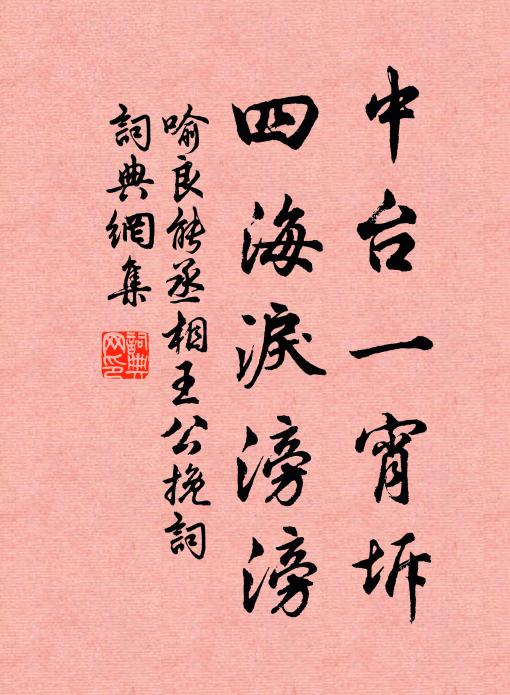 中台一宵坼
四海淚滂滂
喻良能丞相王公挽詞
詞典網集
詞典網印